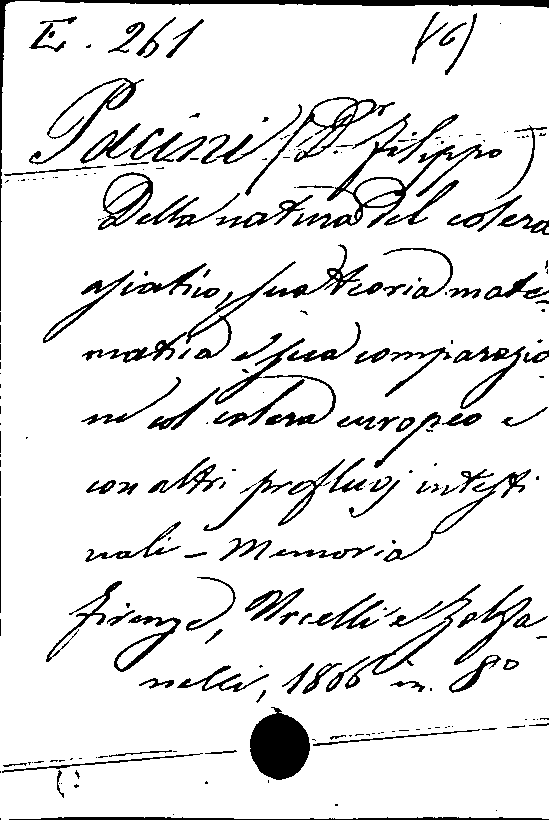 E. 261 (6)
Pacini (Dr. Filippo)
Della natura del colera
asiatico, sua teoria mate-
matica e sua comparazio
ne col colera europeo e
con altri profluvj intesti
nali - Memoria
Firenze, Vicelli e Zolfa-
nelli, 1866 in 8°